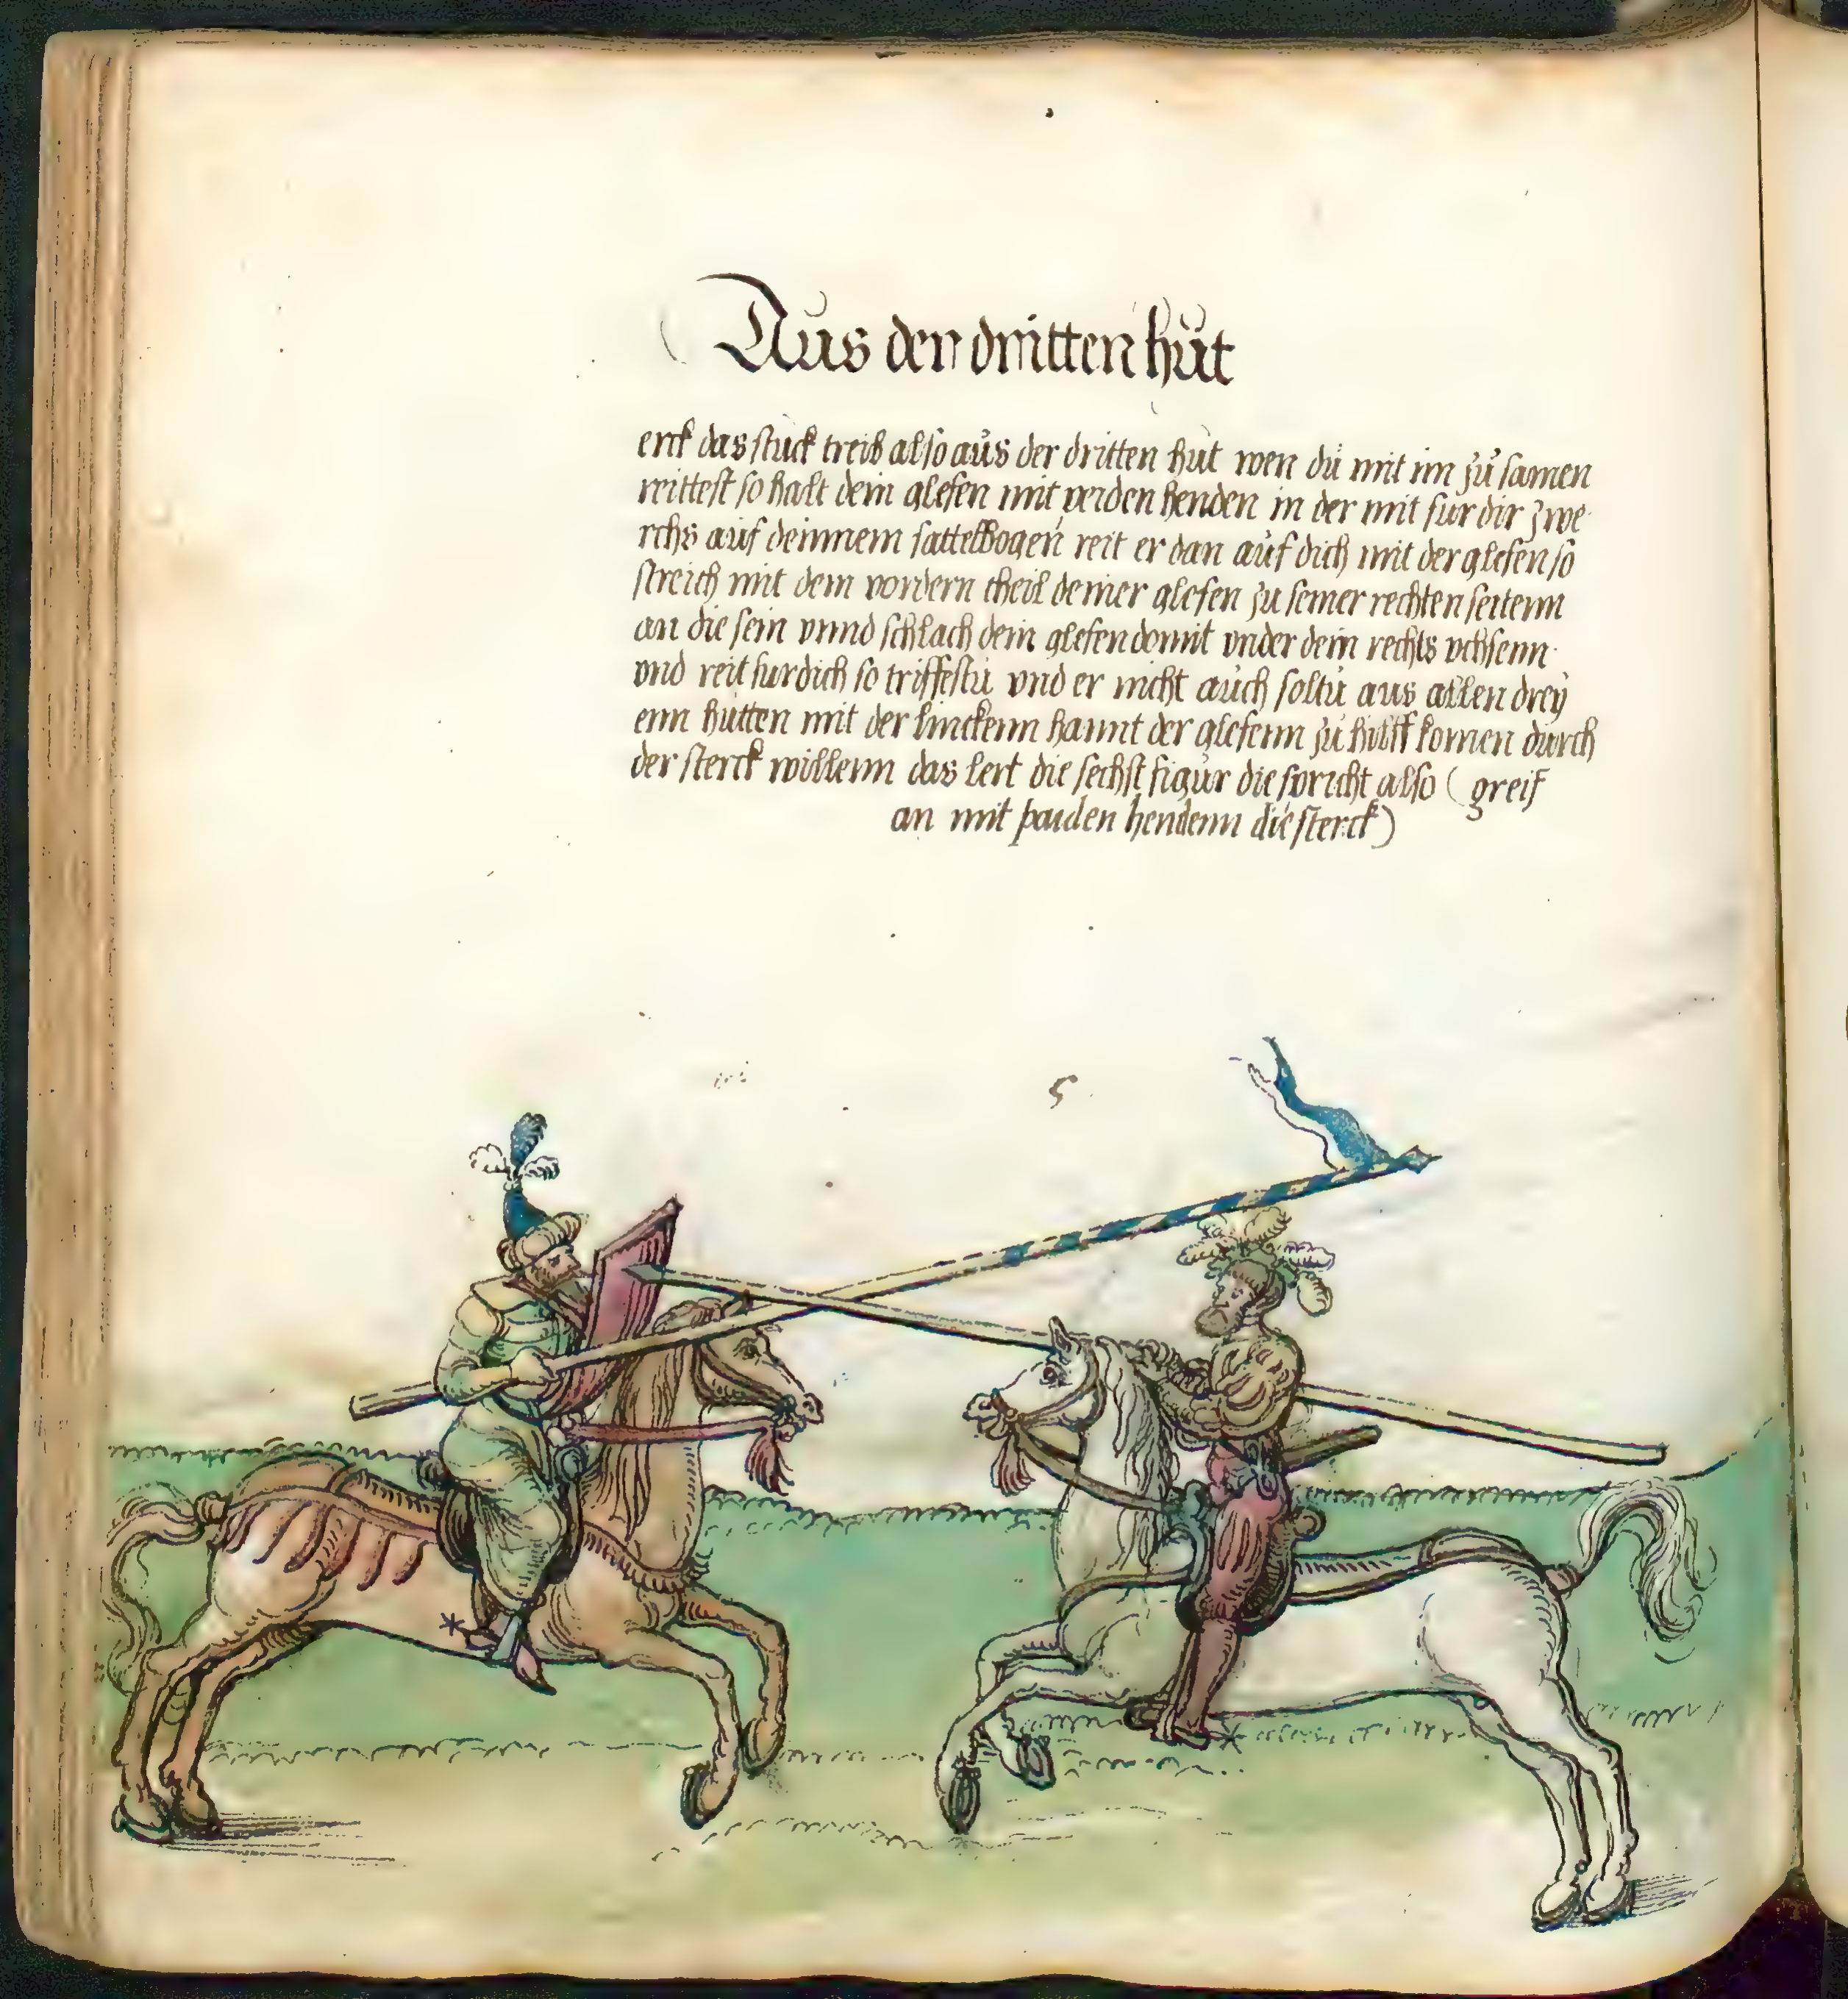 Aus der dritten hut
erck das stuck treib also aus der dritten hut wen du mit im zu samen
reittest so halt dein glefen mit peiden henden in der mit fur dir zwe
rchs auf deinnem sattelbogen reit er dan auf dich mit der glefen so
streich mit dem vordern theil deiner glefen zu seiner rechten seitenn
an die sein vnnd schlach dein glefen domit vnder dein rechts vchsenn
vnd reit fur dich so triffestu vnd er nicht auch soltu aus allen drey
enn hutten mit der linckenn hannt der glefenn zu hilff komen durch
der sterck willenn das lert die sechst figur die spricht also ( greif
an mit paiden hendenn die sterck )
5